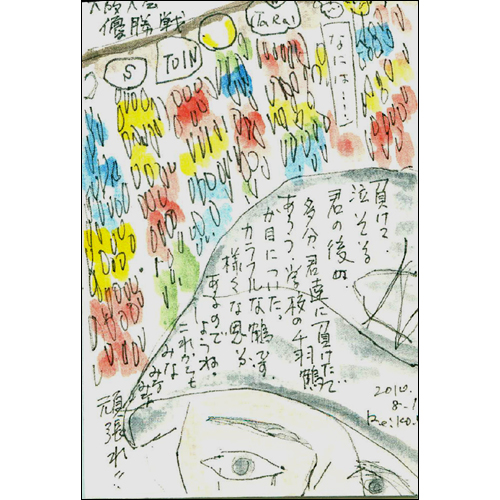 大阪大会
優勝戦
S
TOIN
TaRai
なには…
負けて
泣いてる
君の後の
多分、君達に負けたで
あろう、学校の千羽鶴
が目についた。
カラフルな鶴です。
様々な思いが
あるので
ようね。
これからも
みな
みなみな
頑張れ!!
2010.
8-1
Reiko.